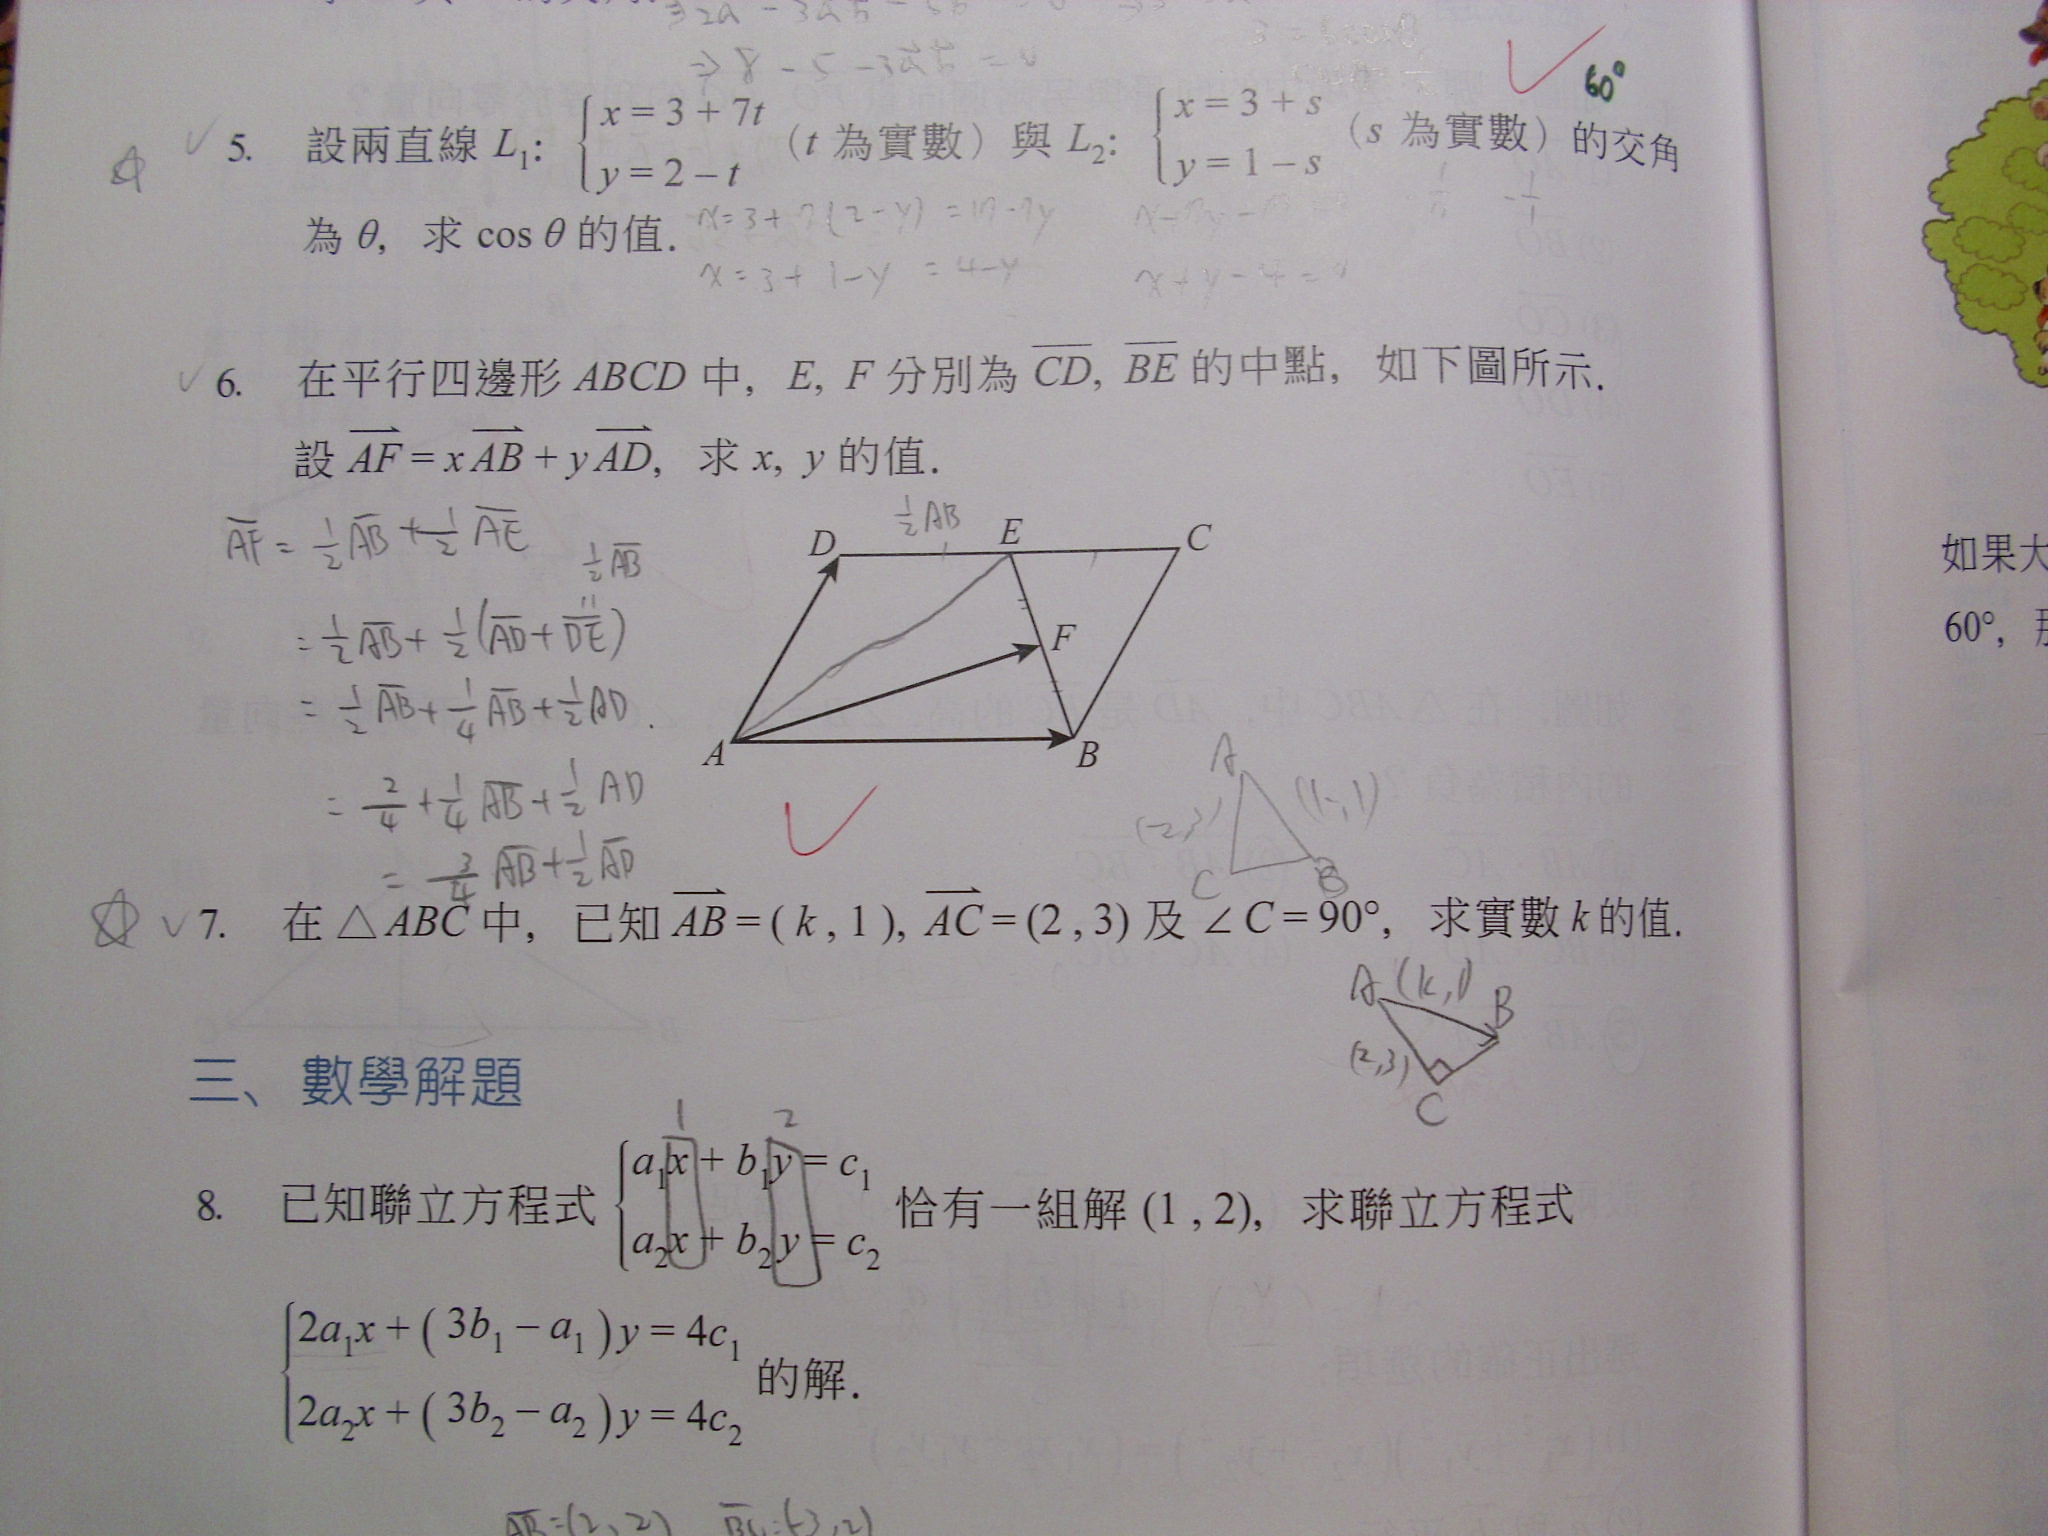 ⇒ 8 - 5 - 3
60°
5. 設兩直線 L₁: { x = 3 + 7t, y = 2 - t (t 為實數) 與 L₂: { x = 3 + s, y = 1 - s (s 為實數) 的交角
為 θ, 求 cos θ 的值.
x = 3 + 7(2 - y) = 17 - 7y
x = 3 + 1 - y = 4 - y
x + y - 4 =
6. 在平行四邊形 ABCD 中, E, F 分別為 CD, BE 的中點, 如下圖所示.
設 AF = x AB + y AD, 求 x, y 的值.
AF = 1/2 AB + 1/2 AE
1/2 AB
= 1/2 AB + 1/2 (AD + DE)
= 1/2 AB + 1/4 AB + 1/2 AD.
= 2/4 + 1/4 AB + 1/2 AD
= 3/4 AB + 1/2 AD
1/2 AB
D E C
F
A B
A
(k,1)
C B
7. 在 △ABC 中, 已知 AB = (k , 1), AC = (2 , 3) 及 ∠C = 90°, 求實數 k 的值.
A (k,1) B
(2,3)
C
三、數學解題
1 2
8. 已知聯立方程式 { a₁x + b₁y = c₁, a₂x + b₂y = c₂ 恰有一組解 (1 , 2), 求聯立方程式
{ 2a₁x + ( 3b₁ - a₁ )y = 4c₁, 2a₂x + ( 3b₂ - a₂ )y = 4c₂ 的解.
AB = (2, 2)
如果大
60°,